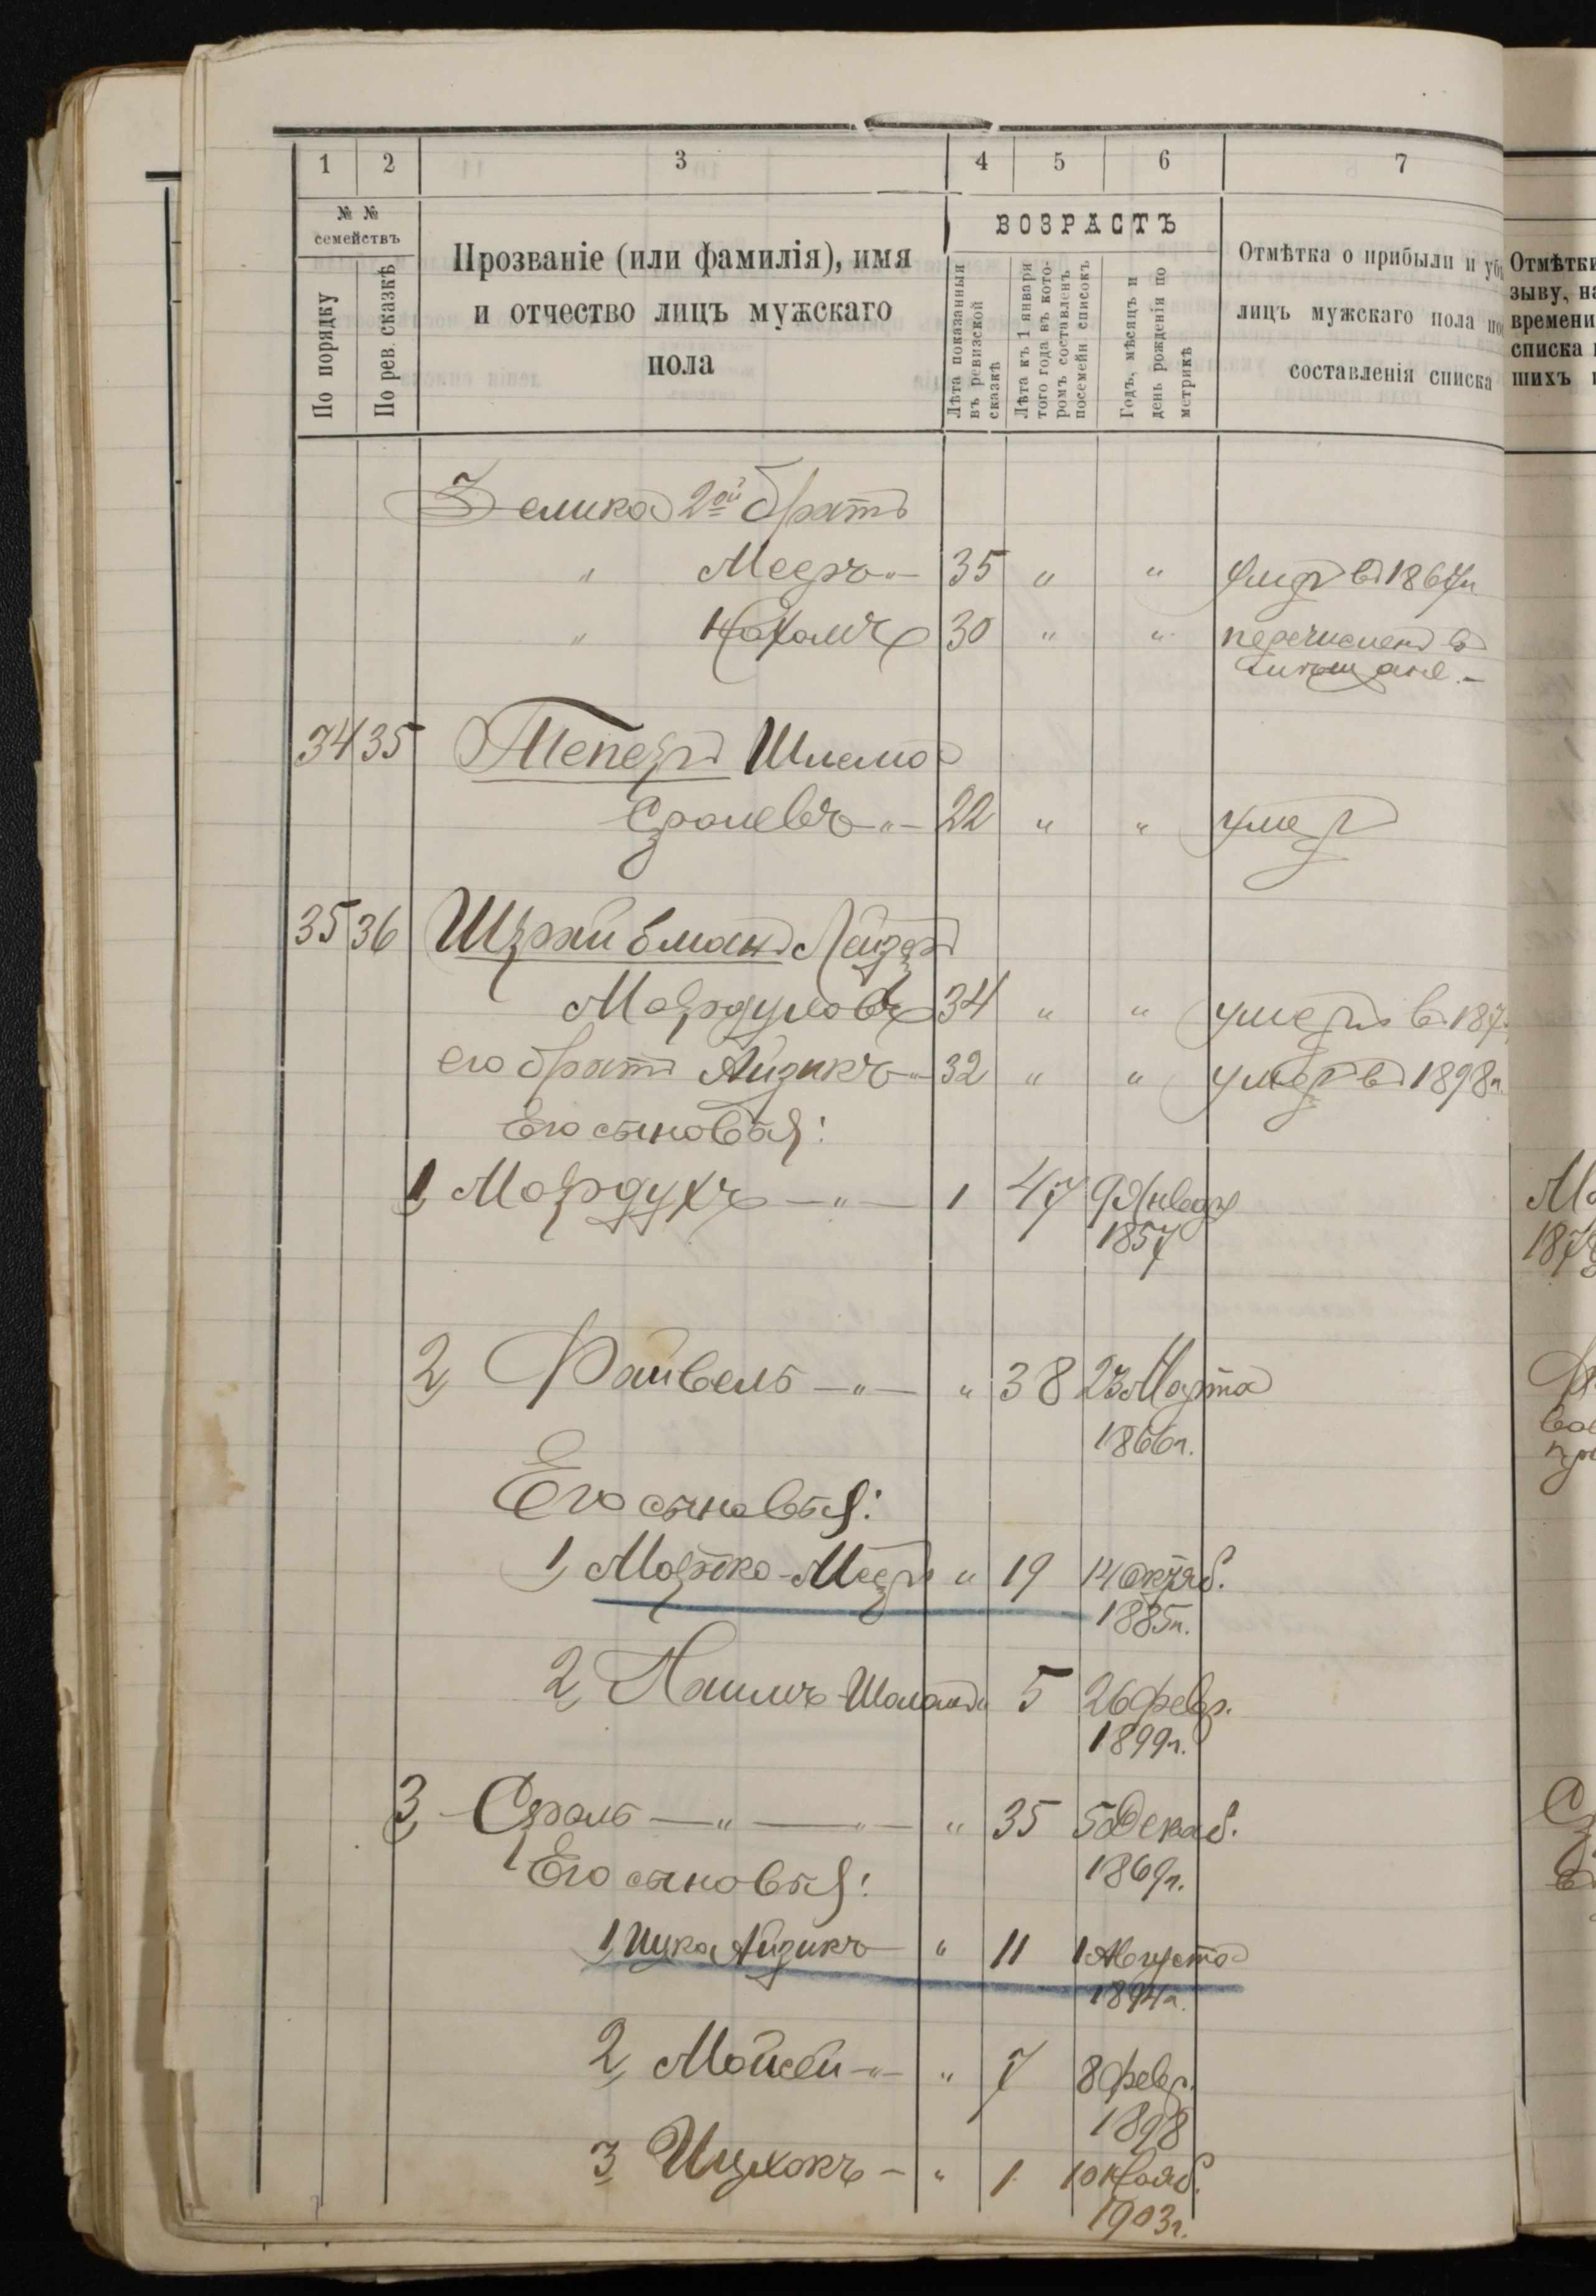 1 2 3 4 5 6 7
№ № семействъ
По порядку
По рев. сказкѣ
Прозваніе (или фамилія), имя
и отчество лицъ мужскаго
пола
ВОЗРАСТЪ
Лѣта показанныя
въ ревизской
сказкѣ
Лѣта къ 1 января
того года въ кото-
ромъ составленъ
посемейн списокъ
Годъ, мѣсяцъ и
день рожденія по
метрикѣ
Отмѣтка о прибыли и
лицъ мужскаго пола
составленія списка
Отмѣтки
зыву, на
времени
списка
шихъ
Зелика 2ой братъ
" Мееръ " 35 " " умеръ въ 1867г.
" Нахамъ 30 " " перечисленъ въ
34 35 Теперъ Шлема
Сролевъ " 22 " " умеръ
35 36 Лейзеръ
Мордуховъ 34 " " умеръ въ 187
его братъ Айзикъ " 32 " " умеръ въ 1898г.
Его сыновья:
1, Мордухъ — " — 1 47 9 Января
1857
2, Файвель — " — " 38 23 Марта
1866г.
Его сыновья:
1, Мортко-Мееръ " 19 14 октяб.
1885г.
2, Хаимъ " 5 26 февр.
1899г.
3, Сроль — " — " — " 35 5 Декаб.
1869г.
Его сыновья:
1, Ицко Айзикъ — " 11 1 Августа
1894г.
2, Мойсей — " — " 7 8 февр.
1898
3, Ицхокъ — " 1 10 Нояб.
1903г.